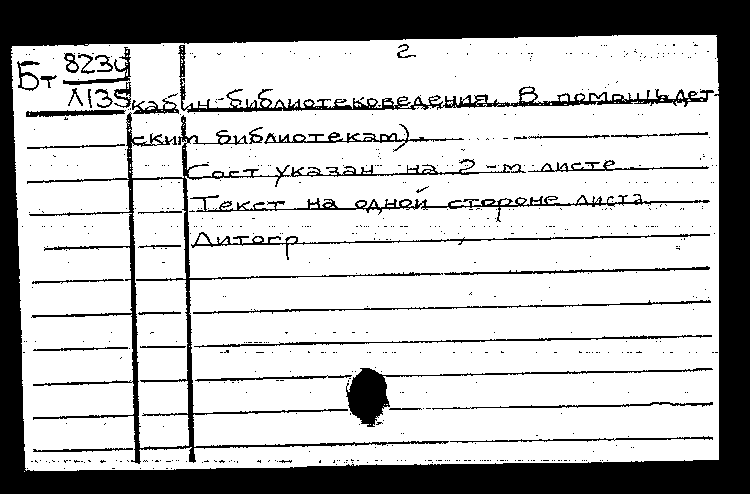 2
Бт 8230
Л135
кабин библиотековедения. В помощь дет-
ским библиотекам).
Сост указан на 2-м листе
Текст на одной стороне листа
Литогр